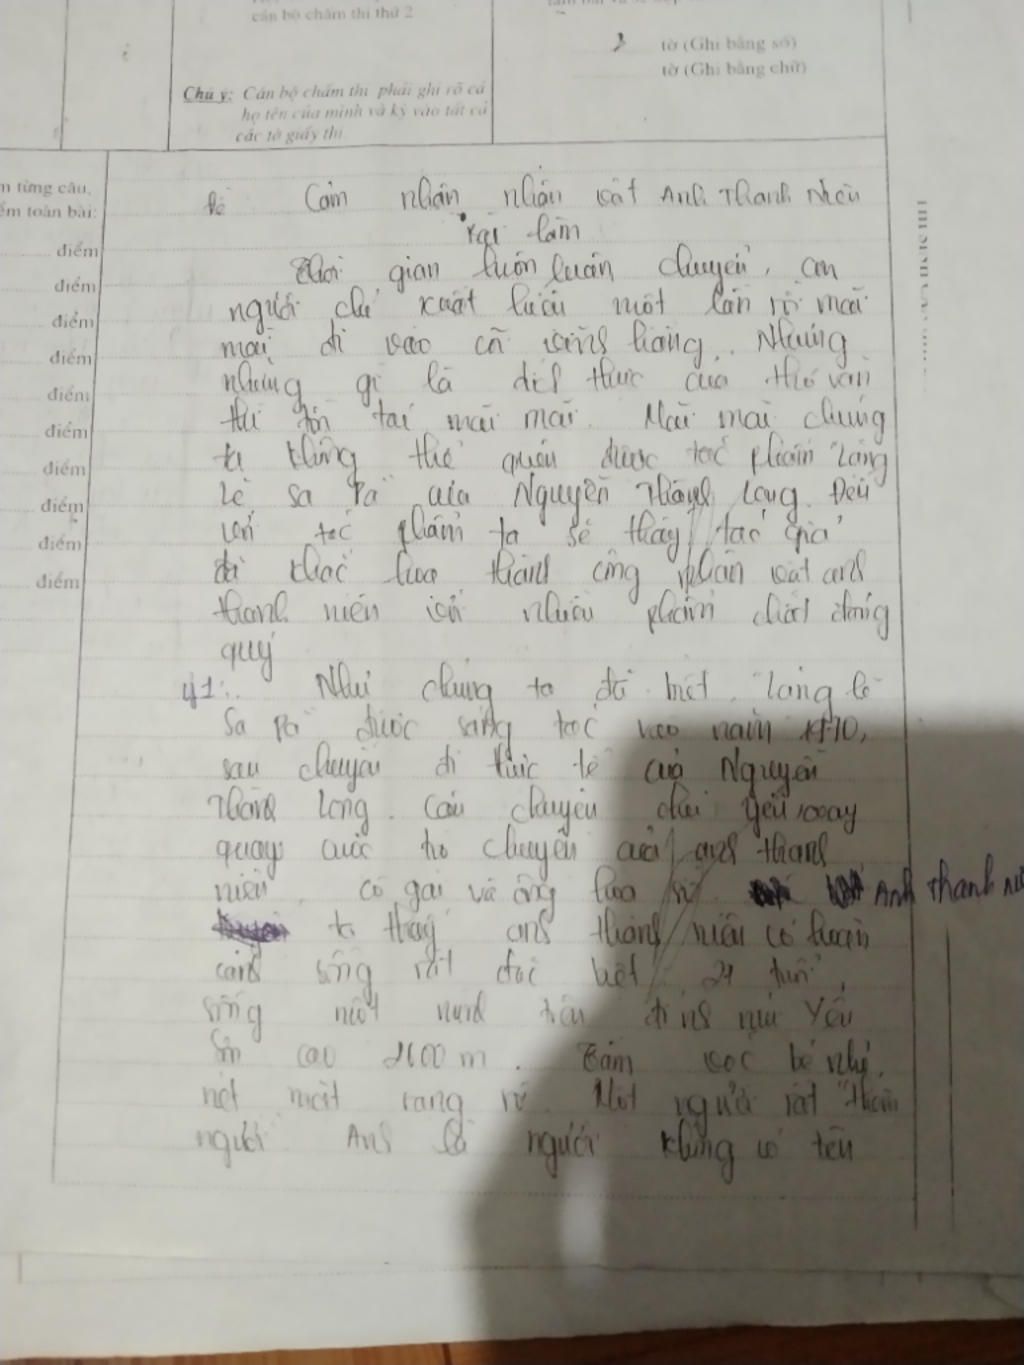 cán bộ chấm thi thứ 2
tờ (Ghi bằng số)
tờ (Ghi bằng chữ)
Chú ý: Cán bộ chấm thi phải ghi rõ cả
họ tên của mình và ký vào tất cả
các tờ giấy thi.
m từng câu,
ểm toàn bài:
điểm
điểm
điểm
điểm
điểm
điểm
điểm
điểm
điểm
điểm
Đề Cảm nhận nhân vật Anh Thanh Niên
Bài làm
Thời gian luôn luân chuyển, con
người chỉ xuất hiện một lần rồi mãi
mãi đi vào cõi vĩnh hằng. Nhưng
những gì là đích thực của thơ văn
thì tồn tại mãi mãi. Mãi mãi chúng
ta không thể quên được tác phẩm "Lặng
Lẽ Sa Pa" của Nguyễn Thành Long. Đến
với tác phẩm ta sẽ thấy tác giả
đã khắc họa thành công nhân vật anh
thanh niên với nhiều phẩm chất đáng
quý
ý1: Như chúng ta đã biết "Lặng lẽ
Sa Pa" được sáng tác vào năm 1970,
sau chuyến đi thực tế của Nguyễn
Thành Long. Câu chuyện chủ yếu xoay
quay cuộc trò chuyện của anh thanh
niên, cô gái và ông họa sĩ. Anh thanh ni
ta thấy anh thanh niên có hoàn
cảnh sống rất đặc biệt: 27 tuổi,
sống một mình trên đỉnh núi Yên
Sơn cao 2600m. Tầm vóc bé nhỏ,
nét mặt rạng rỡ. Một người rất "thèm
người". Anh là người không có tên